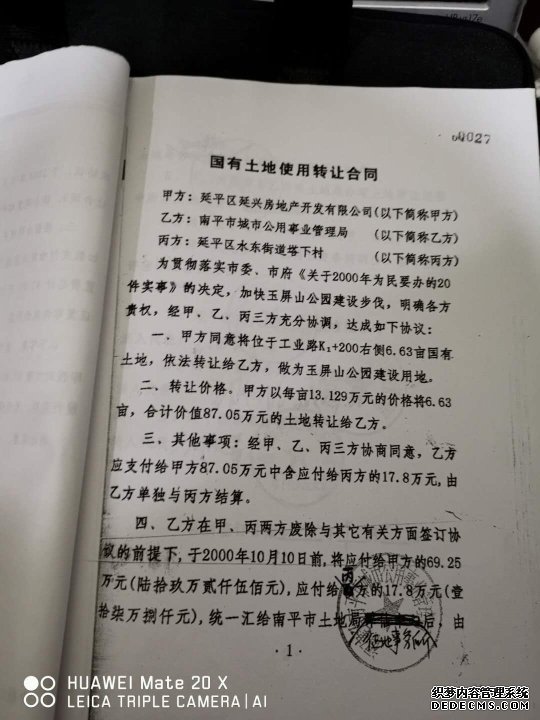 00027
国有土地使用转让合同
甲方：延平区延兴房地产开发有限公司(以下简称甲方)
乙方：南平市城市公用事业管理局 (以下简称乙方)
丙方：延平区水东街道塔下村 (以下简称丙方)
为贯彻落实市委、市府《关于2000年为民要办的20
件实事》的决定，加快玉屏山公园建设步伐，明确各方
责权，经甲、乙、丙三方充分协调，达成如下协议：
一、甲方同意将位于工业路K₁+200右侧6.63亩国有
土地，依法转让给乙方，做为玉屏山公园建设用地。
二、转让价格。甲方以每亩13.129万元的价格将6.63
亩，合计价值87.05万元的土地转让给乙方。
三、其他事项：经甲、乙、丙三方协商同意，乙方
应支付给甲方87.05万元中含应付给丙方的17.8万元，由
乙方单独与丙方结算。
四、乙方在甲、丙两方废除与其它有关方面签订协
议的前提下，于2000年10月10日前，将应付给甲方的69.25
万元(陆拾玖万贰仟伍佰元)，应付给 方的17.8万元(壹
拾柒万捌仟元)，统一汇给南平市土地局 后，由
·1·
HUAWEI Mate 20 X
LEICA TRIPLE CAMERA | AI
软文内容管理系统
www.shibangchina.com